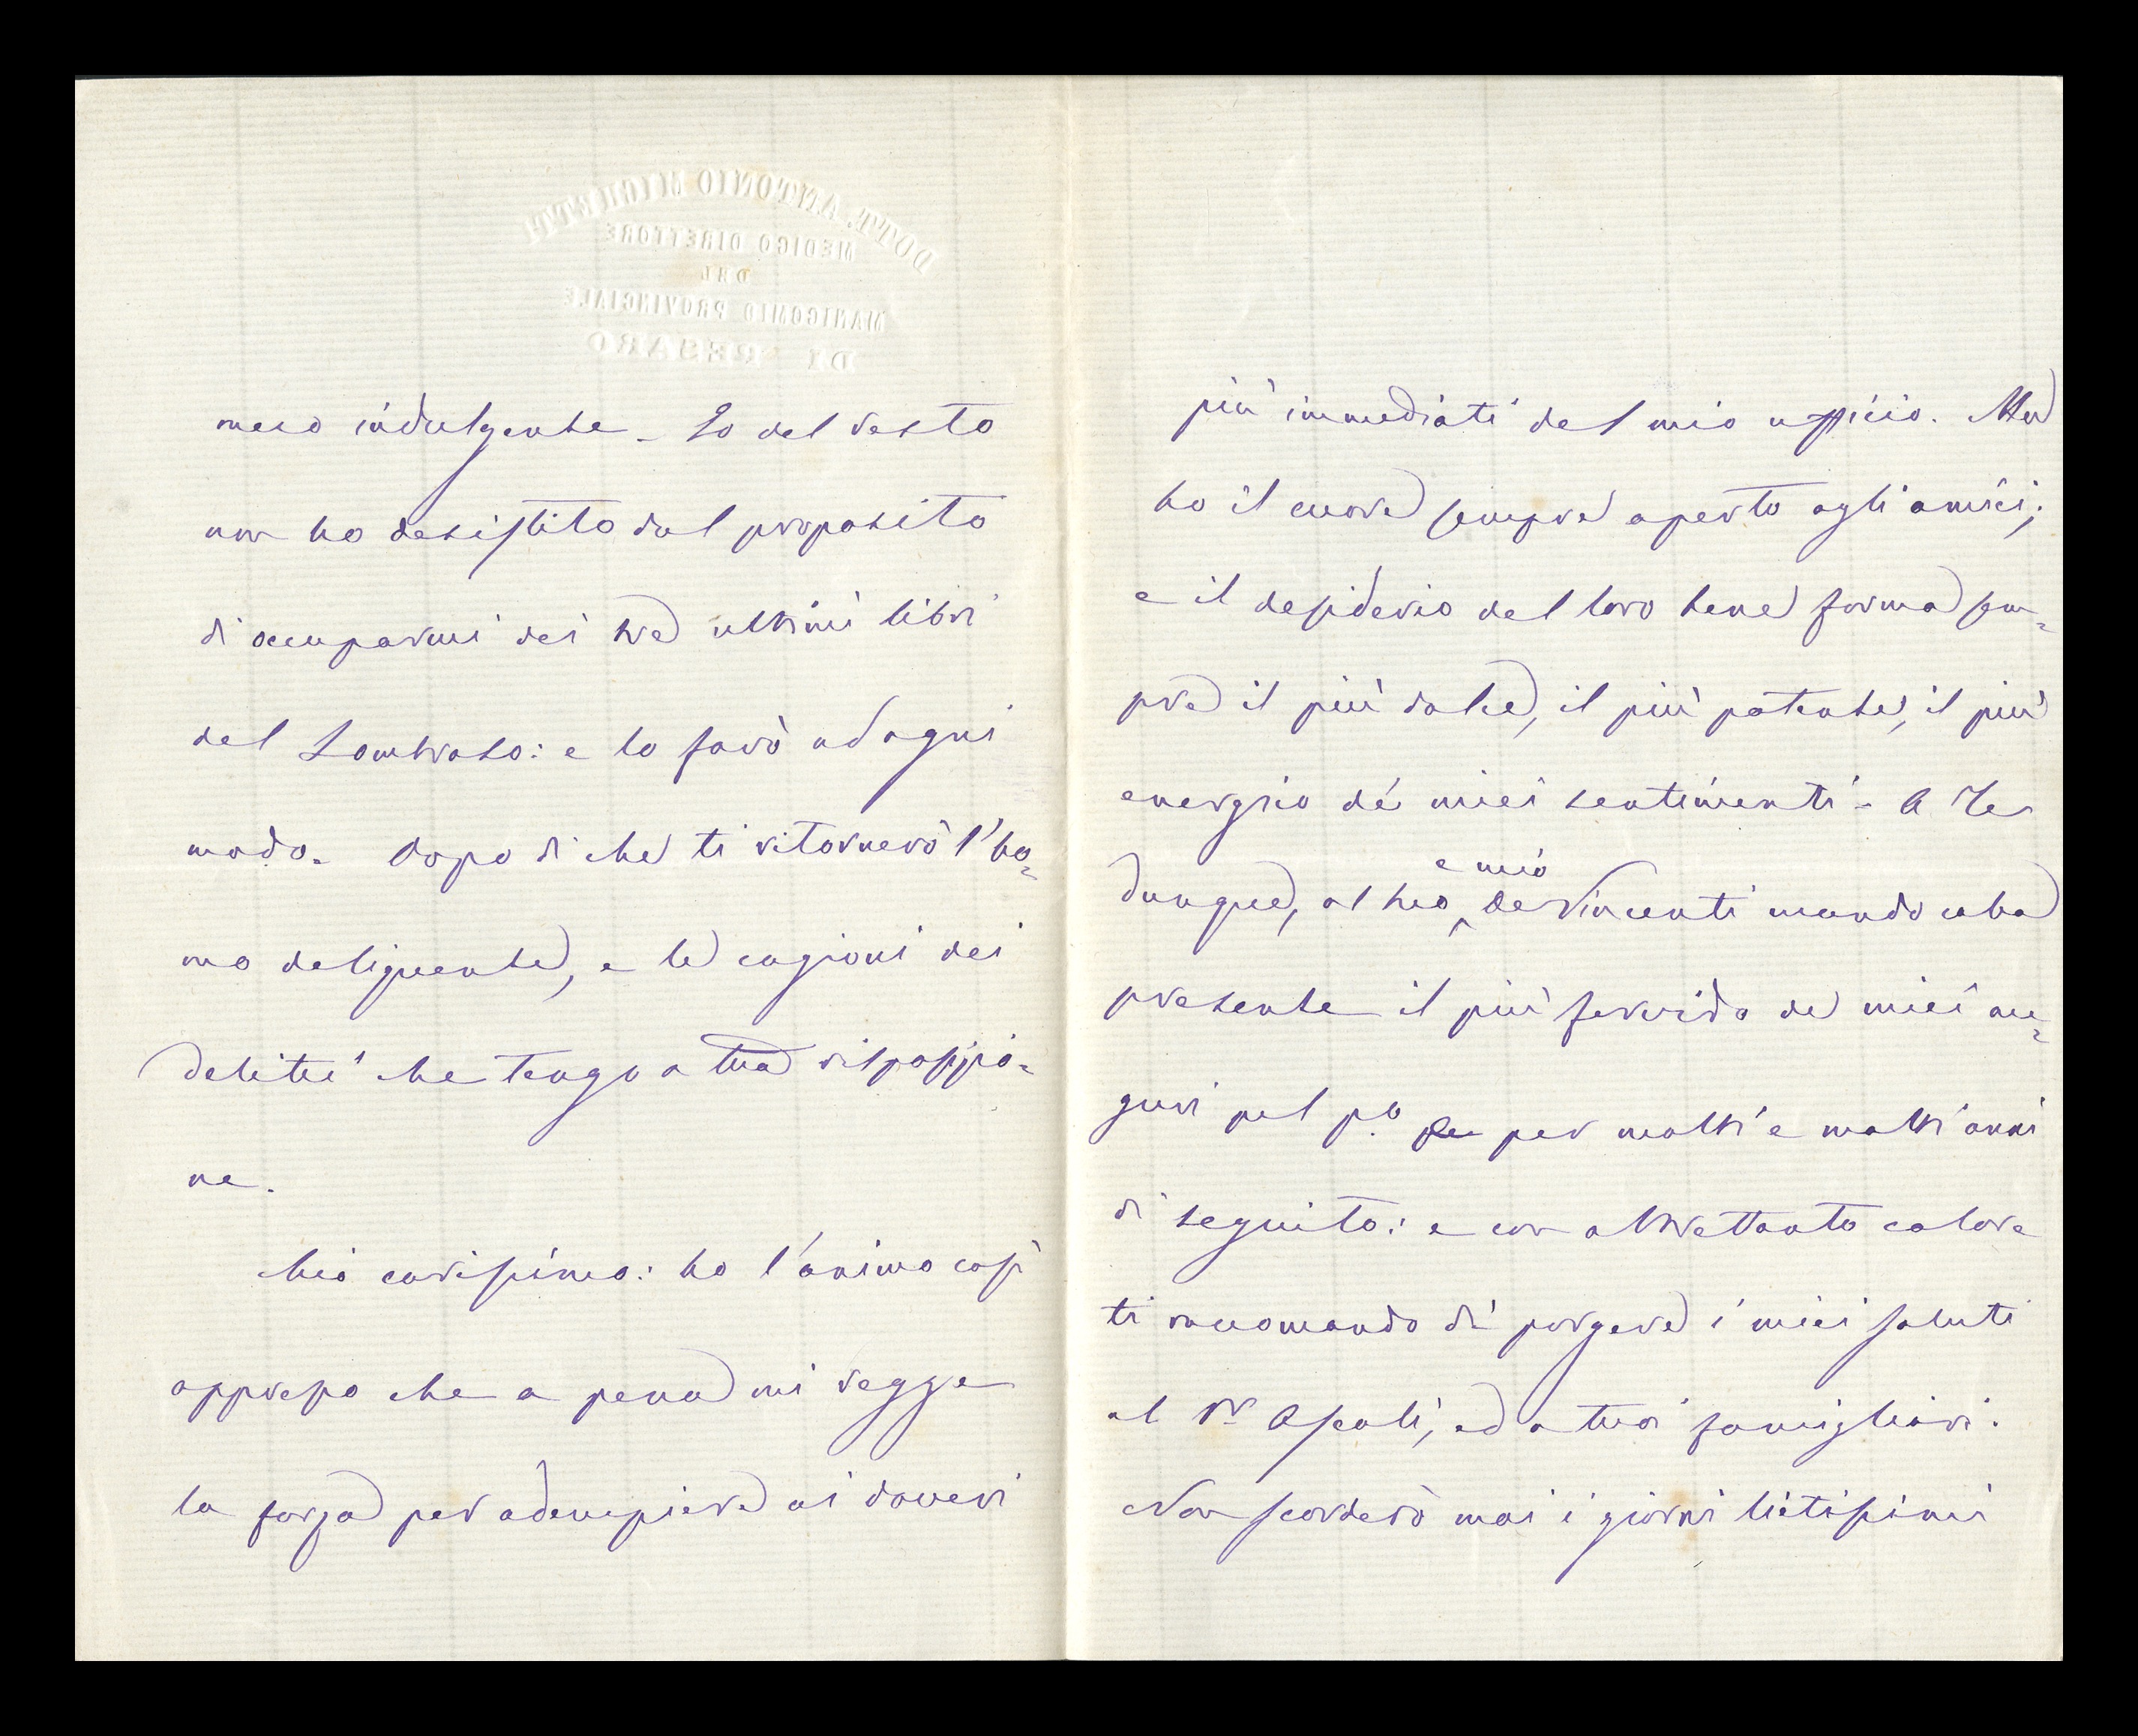 DOTT. ANTONIO MICHETTI
MEDICO DIRETTORE
DEL
MANICOMIO PROVINCIALE
DI PESARO
meco indulgente – Io del resto
non ho desistito dal proposito
di occuparmi dei tre ultimi libri
del Lombroso: e lo farò ad ogni
modo. Dopo di che ti ritornerò l'ho=
mo deliquente, e le cagioni dei
delitti che tengo a tua disposizio=
ne.
Mio carissimo: ho l'animo così
oppresso che a pena mi regge
la forza per adempiere ai doveri
più immediati del mio ufficio. Ma
ho il cuore sempre aperto agli amici;
e il desiderio del loro bene forma sem=
pre il più dolce, il più potente, il più
energico de' miei sentimenti – A Te
e mio
dunque, al tuo De Vincenti mando colla
presente il più fervido de miei au=
guri pel po. per molti e molti anni
di seguito: e con altrettanto calore
ti raccomando di porgere i miei saluti
al Dr Ascoli, ed a tuoi famigliari.
Non scorderò mai i giorni lietissimi